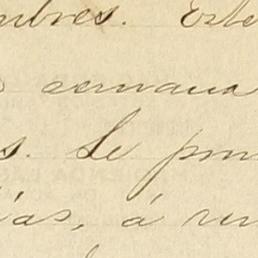 mbres. Este
semana
s. Se pon
ías, á